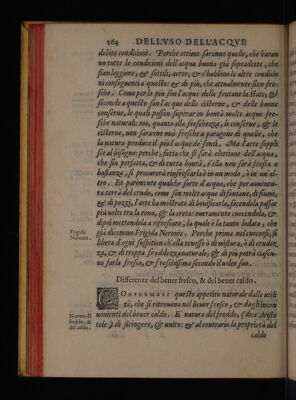 164 DELL'VSO DELL'ACQVE
debite condicioni. Perche ottime saranno quelle, che haran
no tutte le condicioni dell'acqua buona già sopradette, che
sian leggiere, & sottili, aeree, & c'habbino le altre condicio
ni conseguenti à queste: & di più, che attualmente sien fre-
sche. Come per lo più son l'acque delle fontane la state, &
seconde a queste son l'acque delle cisterne, & delle buone
conserue, le quali posson superar in bontà molte acque fre-
sche naturali: mà, quanto alla freschezza, le conserue, & le
cisterne, non saranno mai fresche a paragone di quelle, che
la natura produce il più l'acque de' fonti. Mà l'arte suppli
sce al bisogno: perche, fatta che si sarà elettione dell'acqua,
che sia perfetta, & di tanta bontà, s'ella non sarà fresca a
bastanza, si procurerà rinfrescarla ò in un modo, ò in un'al-
tro. Et parimente qualche sorte d'acqua, che per mauentu-
ra terrà del crudo, come son molte acque di fontane, di fiumi,
& di pozzi, l'arte ha mostrato di bonificarla, facendola passar
più uolte tra la rena, & la creta: oueramente cuocendola, &
dipoi mettendola a rifrescare, la quale è la tanto lodata, che
Frigida
Neronis.
già dicemmo Frigida Neronis. Perche prima nel cuocerse, si
libera d'ogni suspition ch'ella tenesse ò di mistura, ò di crudez
za, & di troppa freddezza naturale; & di più potrà ciascu-
no farla fresca, & freschissima secondo il uoler suo.
Differenze del beuer fresco, & del beuer caldo.
CONFERMASI questo appetito naturale dalle utili
tà, che si ritrouano nel beuer fresco, & dagl'incon
Natura di
freddo, &
del caldo.
uenienti del beuer caldo. E' natura del freddo, (dice Aristo
tele) di stringere, & unire: & al contrario la proprietà del
caldo